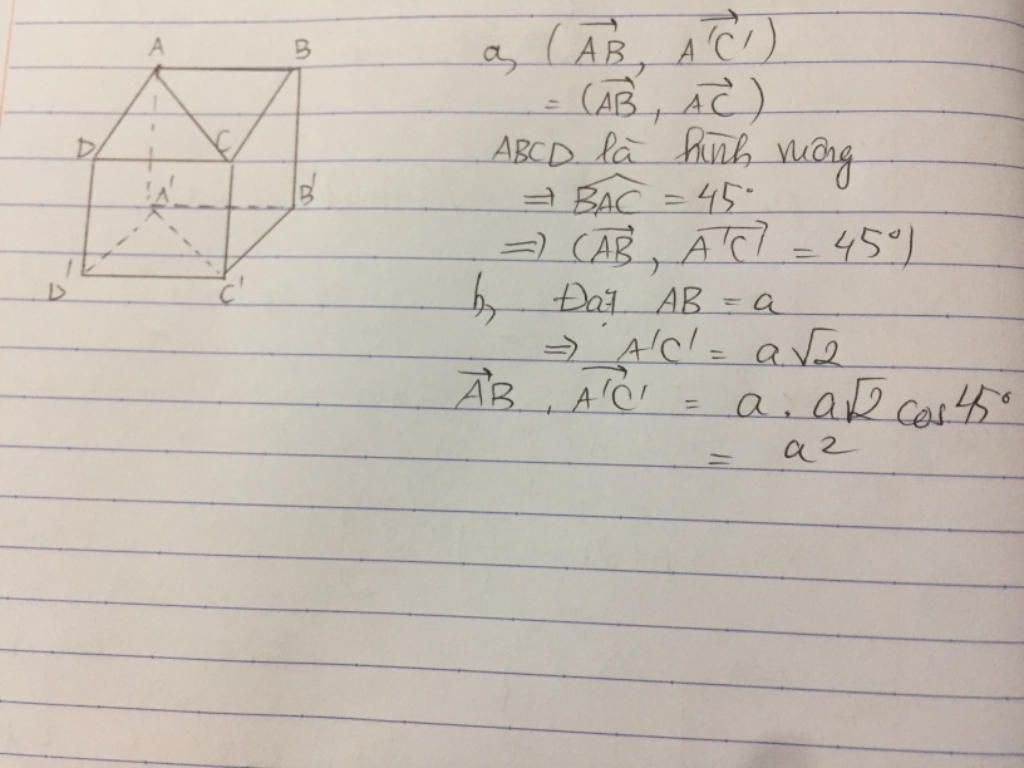 A B
D C
A' B'
D' C'
a, (\overrightarrow{AB}, \overrightarrow{A'C'})
= (\overrightarrow{AB}, \overrightarrow{AC})
ABCD là hình vuông
⇒ \widehat{BAC} = 45°
⇒ (\overrightarrow{AB}, \overrightarrow{A'C'} = 45°)
b, Đặt AB = a
⇒ A'C' = a√2
\overrightarrow{AB} . \overrightarrow{A'C'} = a . a√2 cos 45°
= a²